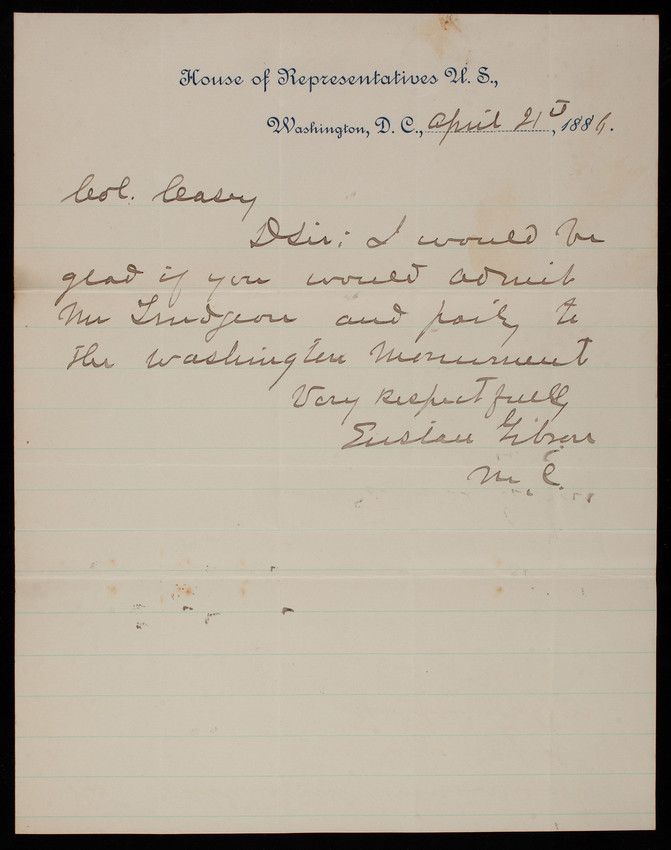 House of Representatives U. S.,
Washington, D. C., April 21st, 1886.
Col. Casey
D Sir; I would be
glad if you would admit
Mr and party to
the Washington Monument
Very respectfully
Eustace Gibson
M. C.